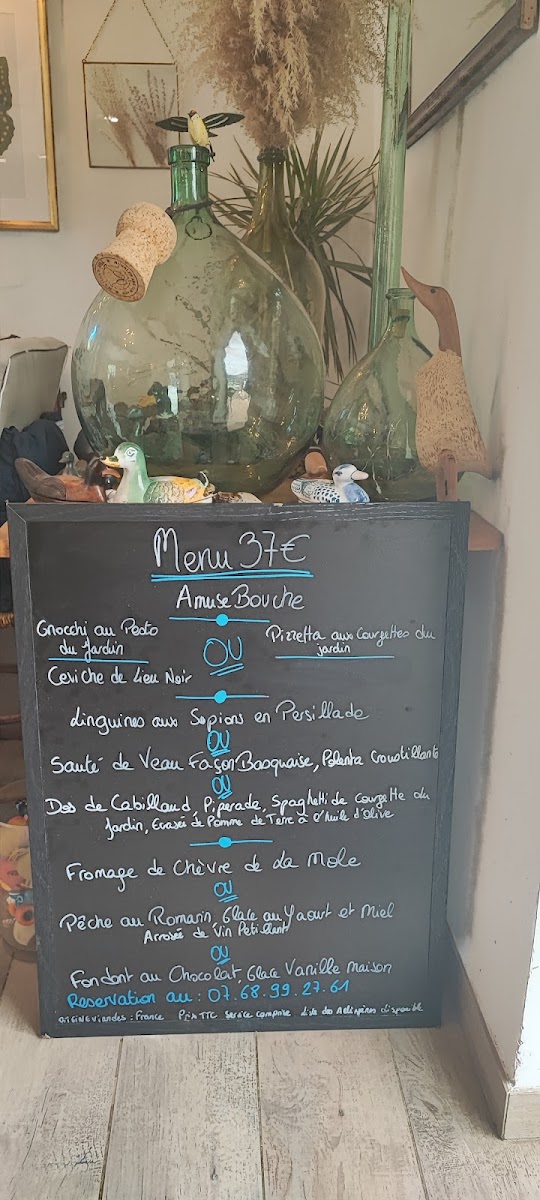 Menu 37€
Amuse Bouche
Gnocchi au Pesto
du Jardin
OU
Pizzetta aux Courgettes du
jardin
Ceviche de Lieu Noir
Linguines aux Sepions en Persillade
OU
Sauté de Veau Façon Basquaise, Polenta Croustillante
OU
Dos de Cabillaud, Piperade, Spaghetti de Courgette du
Jardin, Ecrasé de Pomme de Terre à l'Huile d'Olive
Fromage de Chèvre de La Mole
OU
Pêche au Romarin, Glace au Yaourt et Miel
Arrosée de Vin Petillant
OU
Fondant au Chocolat Glace Vanille Maison
Reservation au : 07.68.99.27.61
origine viandes : France Prix TTC Service comprise Liste des Allergènes disponible